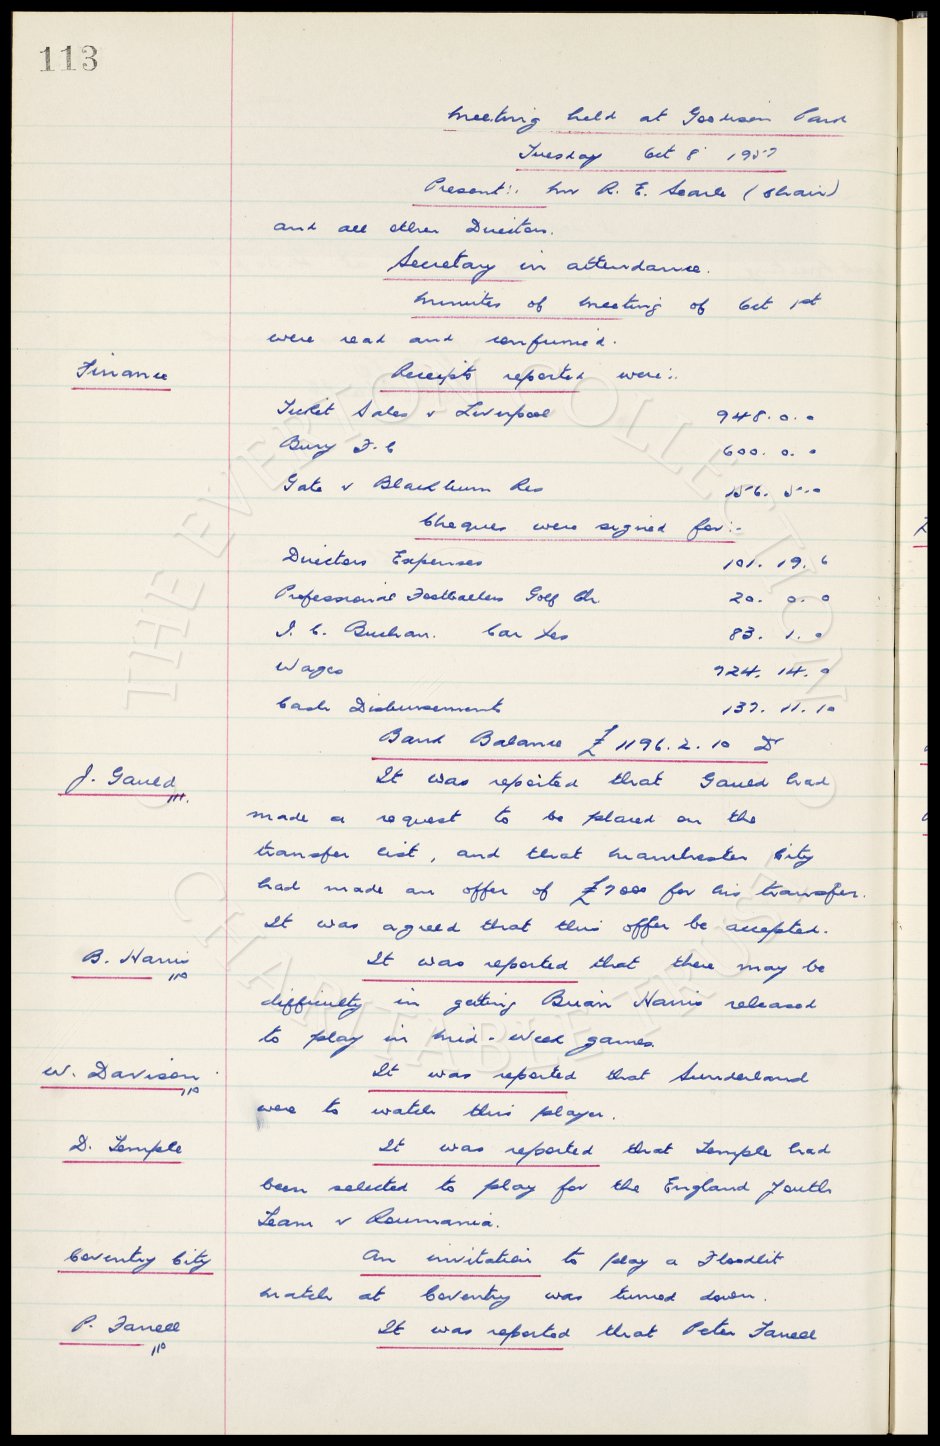 113
Meeting held at Goodison Park
Tuesday Oct 8 1957
Present:- Mr R. E. Searle (Chair)
and all other Directors.
Secretary in attendance.
Minutes of Meeting of Oct 1st
were read and confirmed.
Finance
Receipts reported were:-
Ticket Sales v Liverpool 948. 0. 0
Bury F.C 600. 0. 0
Gate v Blackburn Res 156. 5. 0
Cheques were signed for:-
Directors Expenses 101. 19. 6
Professional Footballers Golf Ch. 20. 0. 0
I. C. Buchan. Car Tes 83. 1. 0
Wages 724. 14. 0
Cash Disbursements 137. 11. 10
Bank Balance £1196. 2. 10 Dr
J. Gauld
111.
It was reported that Gauld had
made a request to be placed on the
transfer list, and that Manchester City
had made an offer of £7000 for his transfer.
It was agreed that this offer be accepted.
B. Harris
110
It was reported that there may be
difficulty in getting Brian Harris released
to play in Mid-Week games.
W. Davison
110
It was reported that Sunderland
were to watch this player.
D. Temple
It was reported that Temple had
been selected to play for the England Youth
Team v Roumania.
Coventry City
An invitation to play a Floodlit
match at Coventry was turned down.
P. Farrell
110
It was reported that Peter Farrell
THE EVERTON COLLECTION
CHARITABLE TRUST